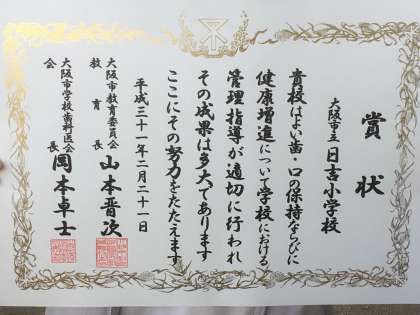 賞状
大阪市立 日吉小学校
貴校はよい歯・口の保持ならびに
健康増進について学校における
管理指導が適切に行われ
その成果は多大であります
ここにその努力をたたえます
平成三十一年二月二十一日
大阪市教育委員会
教育長 山本晋次
大阪市学校歯科医会
会長 岡本卓士